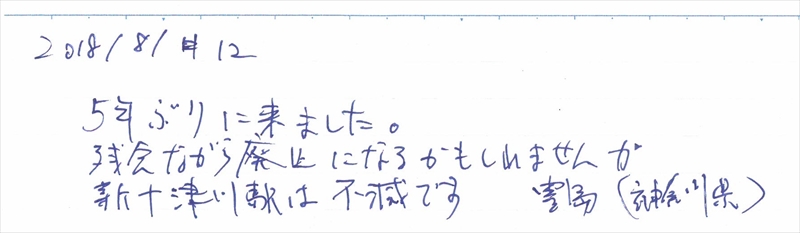 2018/8/12
5年ぶりに来ました。
残念ながら廃止になるかもしれませんが
新十津川駅は不滅です 豊島(神奈川県)